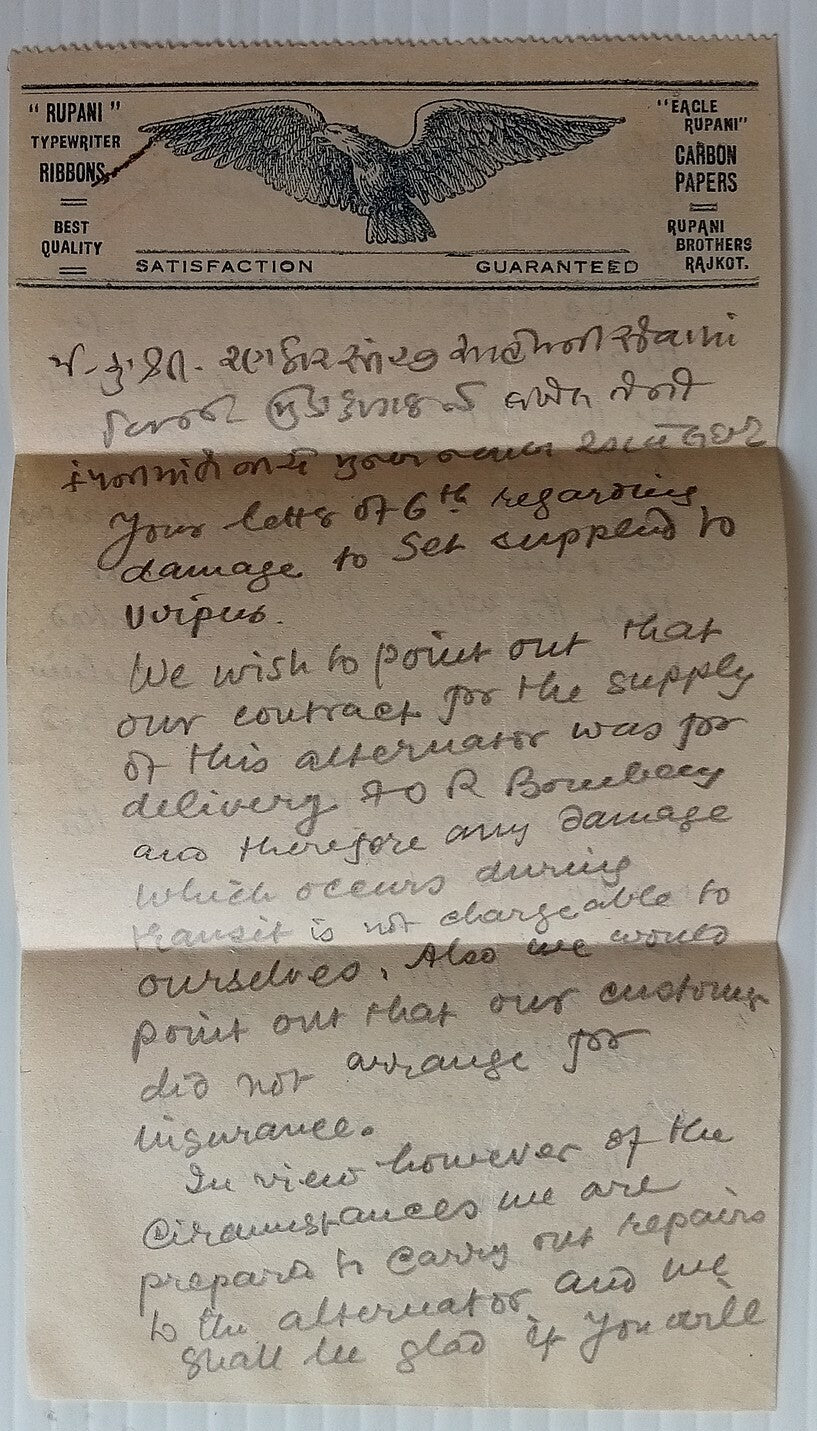 " RUPANI "
TYPEWRITER
RIBBONS
BEST
QUALITY
SATISFACTION GUARANTEED
"EAGLE
RUPANI"
CARBON
PAPERS
RUPANI
BROTHERS
RAJKOT.
Your letter of 6th regarding
damage to Set supplied to
We wish to point out that
our contract for the supply
of this alternator was for
delivery F O R Bombay
and therefore any damage
which occurs during
transit is not chargeable to
ourselves. Also we would
point out that our customer
did not arrange for
insurance.
In view however of the
circumstances we are
prepared to carry out repairs
to the alternator and we
shall be glad if you will